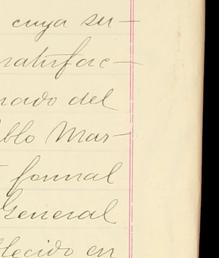 cuya su-
ratisfac-
nado del
blo Mar-
formal
General
blecido en